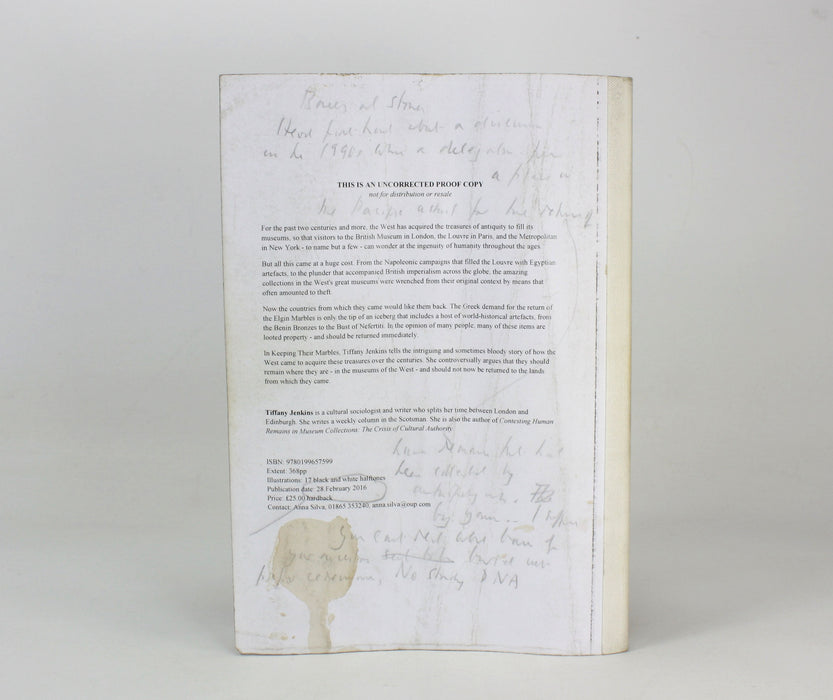 Bones at stones
Heard first hand about a
in the 1990s when a delegation from
a place in
THIS IS AN UNCORRECTED PROOF COPY
not for distribution or resale
the Pacific asked for the return of
For the past two centuries and more, the West has acquired the treasures of antiquity to fill its
museums, so that visitors to the British Museum in London, the Louvre in Paris, and the Metropolitan
in New York - to name but a few - can wonder at the ingenuity of humanity throughout the ages.
But all this came at a huge cost. From the Napoleonic campaigns that filled the Louvre with Egyptian
artefacts, to the plunder that accompanied British imperialism across the globe, the amazing
collections in the West's great museums were wrenched from their original context by means that
often amounted to theft.
Now the countries from which they came would like them back. The Greek demand for the return of
the Elgin Marbles is only the tip of an iceberg that includes a host of world-historical artefacts, from
the Benin Bronzes to the Bust of Nefertiti. In the opinion of many people, many of these items are
looted property - and should be returned immediately.
In Keeping Their Marbles, Tiffany Jenkins tells the intriguing and sometimes bloody story of how the
West came to acquire these treasures over the centuries. She controversially argues that they should
remain where they are - in the museums of the West - and should not now be returned to the lands
from which they came.
Tiffany Jenkins is a cultural sociologist and writer who splits her time between London and
Edinburgh. She writes a weekly column in the Scotsman. She is also the author of Contesting Human
Remains in Museum Collections: The Crisis of Cultural Authority.
human remains that had
been collected by
ISBN: 9780199657599
Extent: 368pp
Illustrations: 17 black and white halftones
Publication date: 28 February 2016
Price: £25.00 hardback
Contact: Anna Silva, 01865 353240, anna.silva@oup.com
You can't rest when bones of
your ancestors
ceremonies, No study DNA